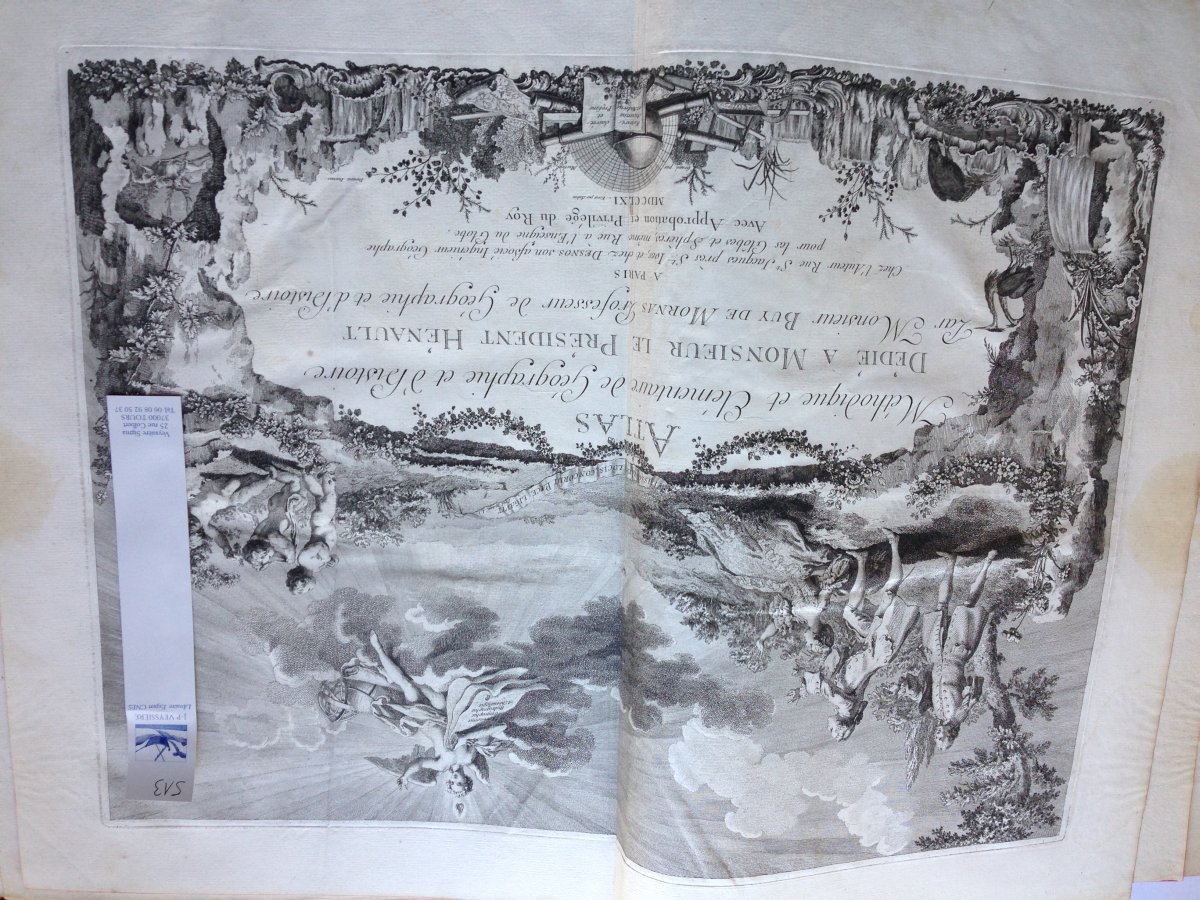 ATLAS
Méthodique et Elémentaire de Géographie et d'Histoire
DEDIÉ A MONSIEUR LE PRÉSIDENT HÉNAULT
Par Monsieur BUY DE MORNAS Professeur de Géographie et d'Histoire
A PARIS
Chez L'Auteur Rue St. Jacques près St. Ives, et chez DESNOS son associé Ingénieur Géographe
pour les Globes et Spheres, même Rue à l'Enseigne du Globe.
Avec Approbation et Privilége du Roy.
MDCCLXI
513
J-P VEYSSIERE
Libraire Expert CNES
Veyssière Sigma
25 rue Colbert
37000 TOURS
Tél. 06 08 92 50 37